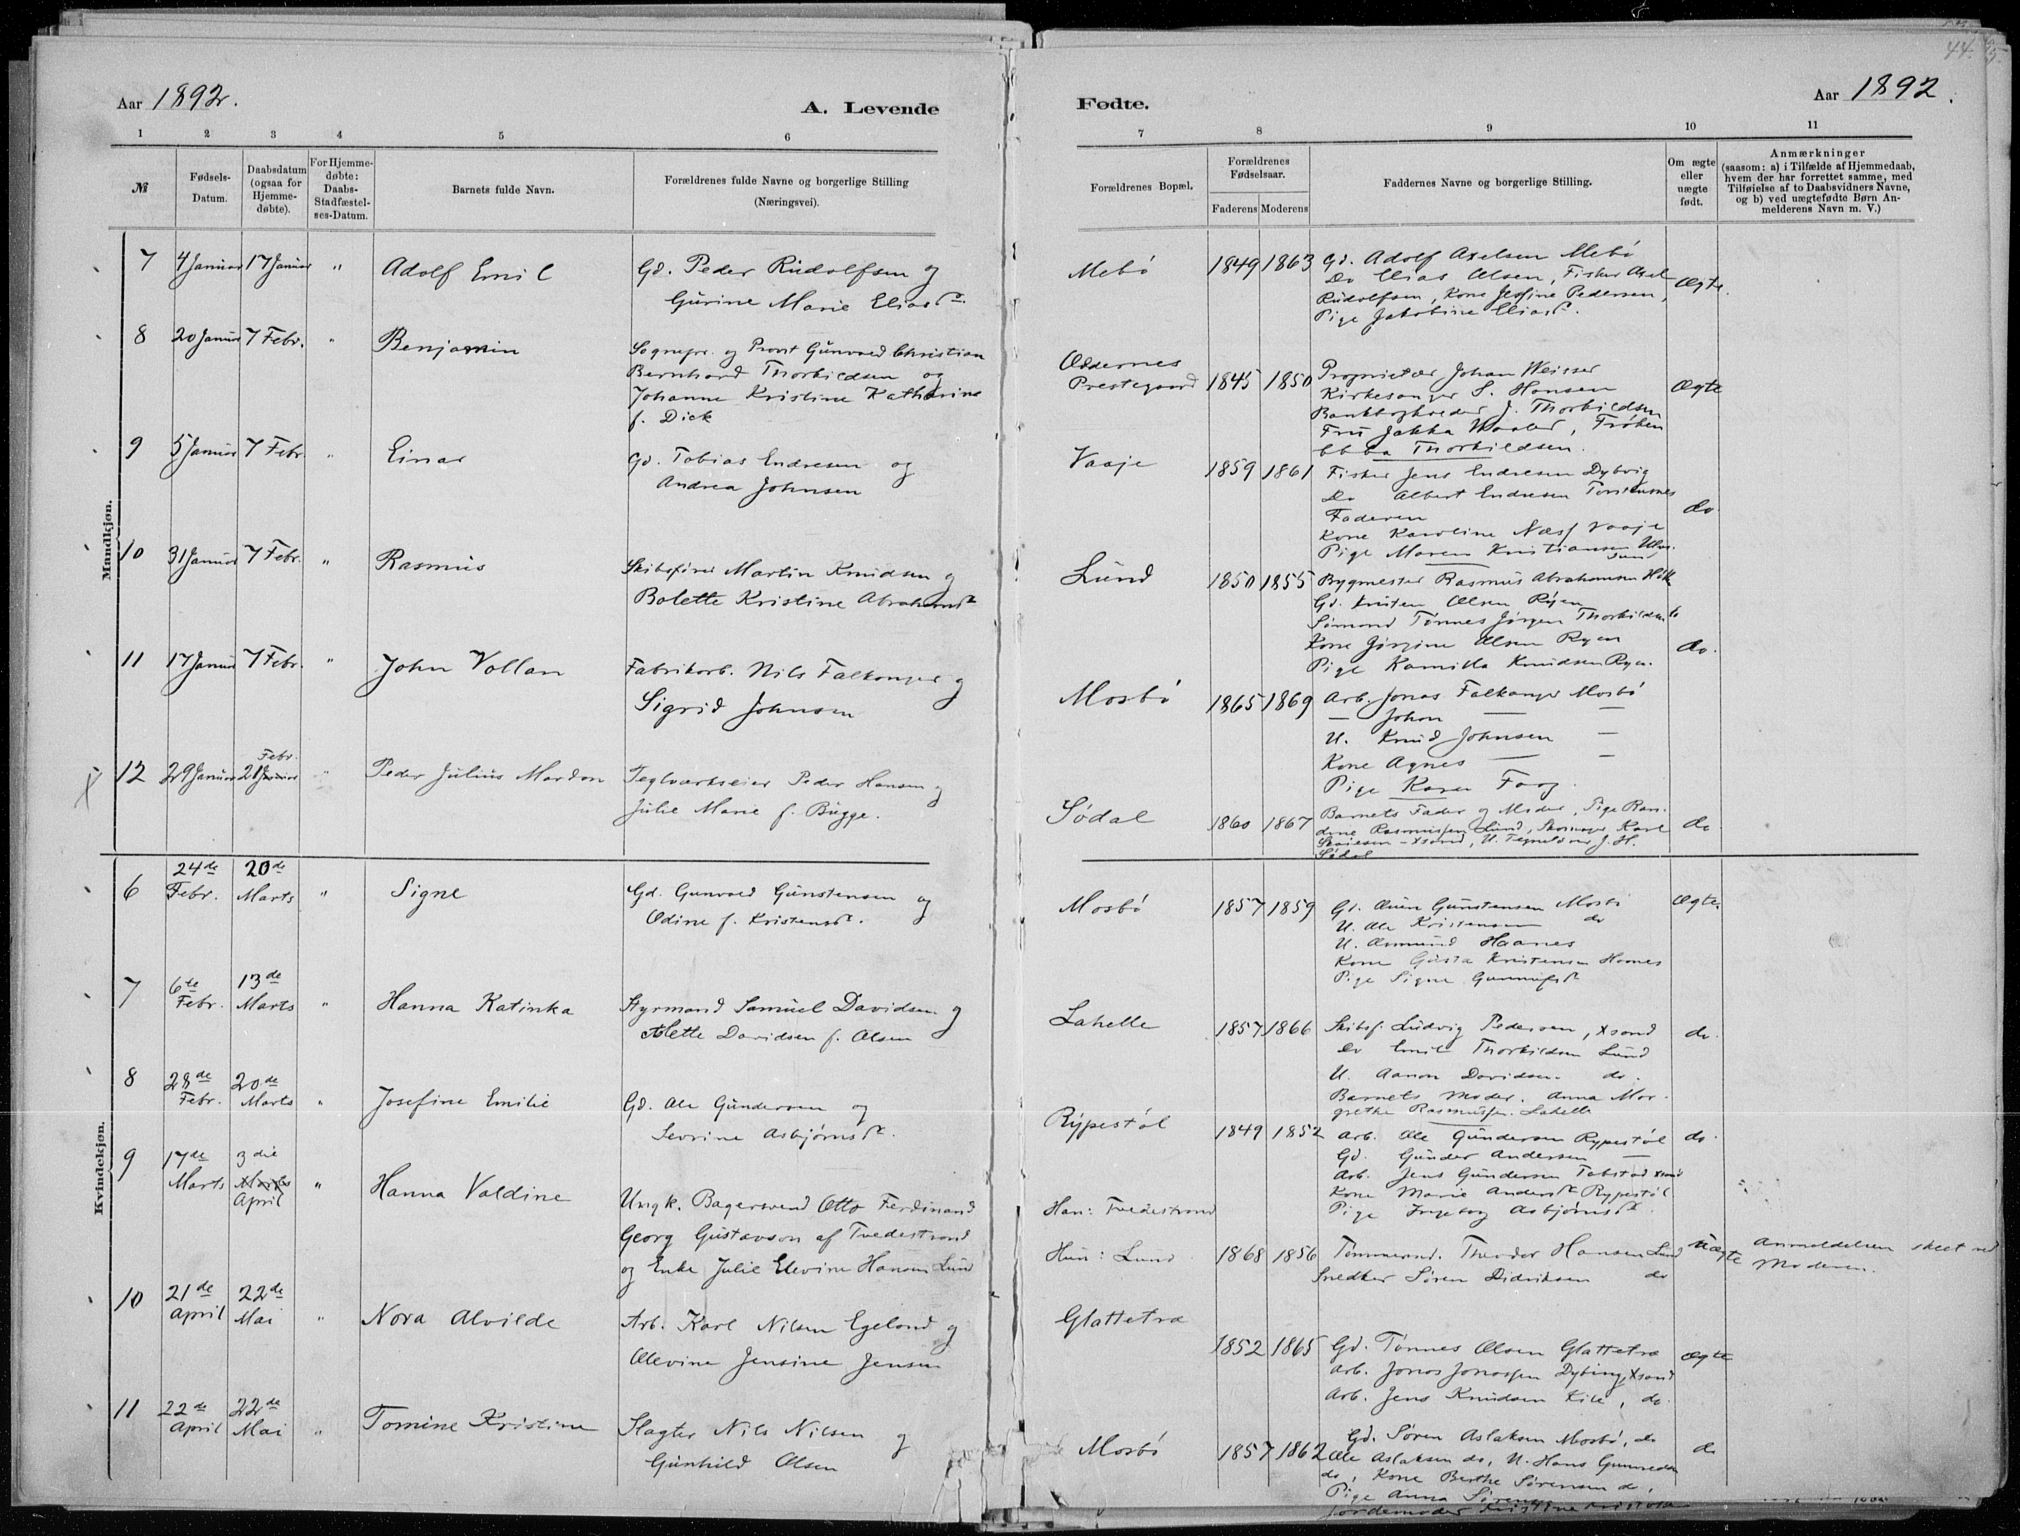 44.
Aar 1892.
A. Levende
Fødte.
Aar 1892.
1 2 3 4 5 6
7 8 9 10 11
№
Fødsels-
Datum.
Daabsdatum
(ogsaa for
Hjemme-
døbte).
For Hjemme-
døbte:
Daabs-
Stadfæstel-
ses-Datum.
Barnets fulde Navn.
Forældrenes fulde Navne og borgerlige Stilling
(Næringsvei).
Forældrenes Bopæl.
Forældrenes
Fødselsaar.
Faderens Moderens
Faddernes Navne og borgerlige Stilling.
Om ægte
eller
uægte
født.
Anmærkninger
(saasom: a) i Tilfælde af Hjemmedaab,
hvem der har forrettet samme, med
Tilføielse af to Daabsvidners Navne,
og b) ved uægtefødte Børn An-
melderens Navn m. V.)
Mandkjøn.
7 4 Januar 17 Januar " Adolf Emil
Gd. Peder Rudolfsen og
Gurine Marie Eliasd.
Mebø 1849 1863
Gd. Adolf Axelsen Mebø
Do Elias Olsen, Fisker Axel
Rudolfsen, Kone Josfine Pedersen,
Pige Jakobine Eliasd.
Ægte.
8 20 Januar 7 Febr. " Benjamin
Sognepr. og Provst Gunvald Christian
Bernhard Thorkildsen og
Johanne Kristine Katharine
f. Dick
Oddernes
Prestegaard 1845 1850
Proprietær Johan Weisser
Kirkesanger S. Hansen
Bankbogholder J. Thorkildsen
Fru Jakka Waaler, Frøken
Ebba Thorkildsen.
Ægte
9 5 Januar 7 Febr " Einar
Gd. Tobias Endresen og
Andrea Johnsen
Vaaje 1859 1861
Fisker Jens Endresen Dybvig
Do Albert Endresen Torstensnes
Faderen
Kone Karoline Næss Vaaje
Pige Maren Kristiansen
do.
10 31 Januar 7 Febr. " Rasmus
Skibsfører Martin Knudsen og
Bolette Kristine Abrahamsd
Lund 1850 1855
Bygmester Rasmus Abrahamsen
Gd. Kristen Olsen Ryen
Sømand Tønnes Jørgen Thorkildsen
Kone Jørgine Olsen Ryen
Pige Kamilla Knudsen Ryen.
do.
11 17 Januar 7 Febr. " John Vollan
Fabrikarb. Nils Falkanger og
Sigrid Johnsen
Mosbø 1865 1869
Arb. Jonas Falkanger Mosbø
— Johan — —
U. Knud Johnsen —
Kone Agnes — —
Pige Karen Faag.
12 29 Januar Febr. 21 Januar " Peder Julius Mardon
Teglværkseier Peder Hansen og
Julie Marie f. Bugge.
Sødal 1860 1867
Barnets Fader og Moder, Pige Ran-
dine Rasmussen Lund, Karl
U. J. H.
Sødal
do
Kvindekjøn.
6 24de Febr. 20de Marts " Signe
Gd. Gunvald Gunstensen og
Odine f. Kristensd.
Mosbø 1857 1859
Gd. Gunstensen Mosbø
U. Ole Kristensen do
U. Asmund Haanes
Kone Gusta Kristensen Homes
Pige Signe
Ægte.
7 6te Febr. 13de Marts " Hanna Katinka
Styrmand Samuel Davidsen og
Alette Davidsen f. Olsen
Lahelle 1857 1866
Skibsf. Ludvig Pedersen, Xsand
Do Emil Thorkildsen Lund
U. Aanon Davidsen do.
Barnets Moder. Anna Mar-
grethe Rasmussen. Lahelle
do.
8 28de Febr. 20de Marts " Josefine Emilie
Gd. Ole Gundersen og
Sevrine Asbjørnsd.
Rypestøl 1849 1852
Arb. Ole Gundersen Rypestøl
Gd. Gunder Andersen —
Arb. Jens Gundersen Tobstad Xsand
Kone Marie Andersd Rypestøl
Pige Ingeborg Asbjørnsd.
do.
9 17de Marts 3die Marts April " Hanna Valdine
Ungk. Bagersvend Otto Ferdinand
Georg Gustavson af Tvedestrand
og Enke Julie Elevine Hansen Lund
Han: Tvedestrand
Hun: Lund 1868 1856
Tømmermd. Theodor Hansen Lund
Snedker Søren Didriksen do
Uægte
Anmeldelsen skeet ved
Moderen.
10 21de April 22de Mai " Nora Alvilde
Arb. Karl Nilsen Egeland og
Olevine Jensine Jensen
Glattetræ 1852 1865
Gd. Tønnes Olsen Glattetræ
Arb. Jonas Jonassen Dybing, Xsand
Arb. Jens Knudsen Kile, do.
Ægte
11 22de April 22de Mai " Tomine Kristine
Slagter Nils Nilsen og
Gunhild Olsen
Mosbø 1857 1862
Gd. Søren Aslaksen Mosbø, do
Ole Aslaksen do, U. Hans Gunvaldsen
do, Kone Berthe Sørensen do,
Pige Anna Sørensen
Jordemoder Kristine
do